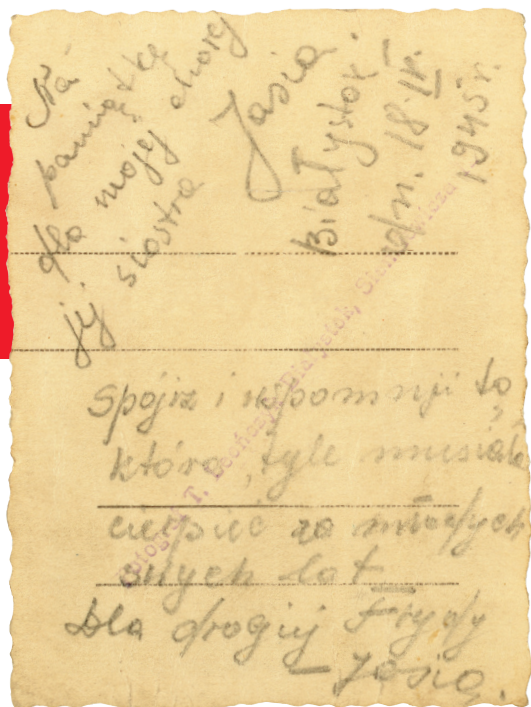 Na
pamiątkę
dla mojej chorej
jej siostra
Jasia
Białystok.
dn. 18. IV.
1945 r.
Spójrz i wspomnij to
która tyle musiała
cierpieć za młodych
swych lat
Dla drogiej Frydy
– Jasia.
Fotograf T. Bochczyk, Białystok,